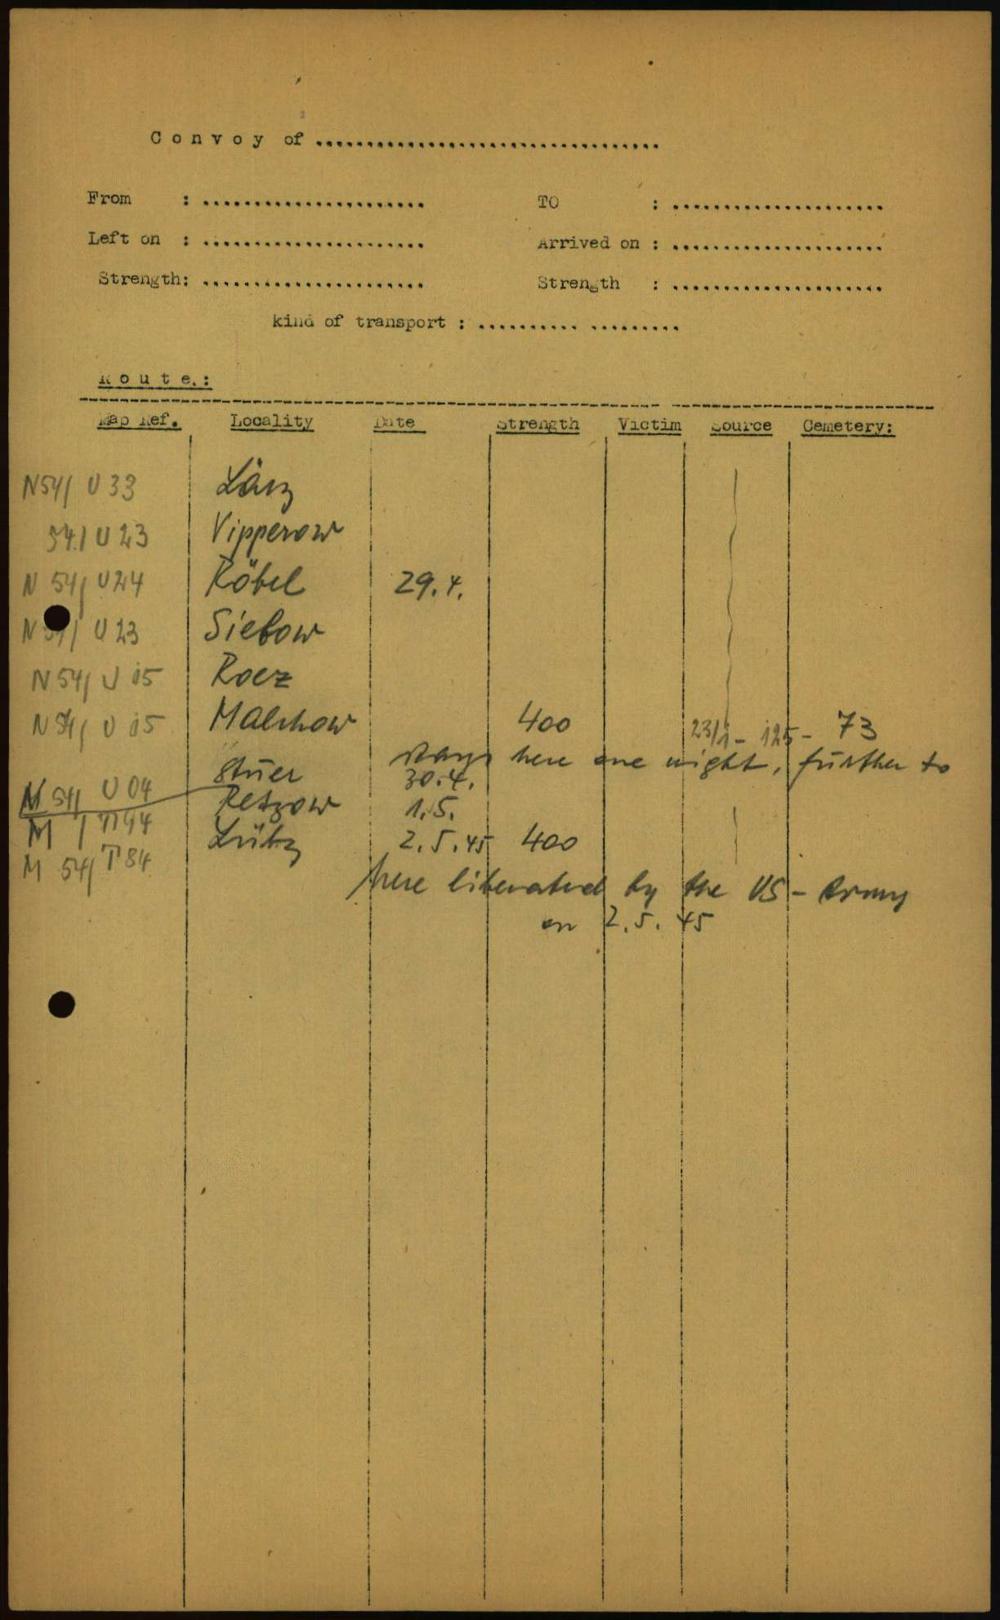 Convoy of ..................................
From : ...................... TO : .....................
Left on : ...................... Arrived on : .....................
Strength: ...................... Strength : .....................
kind of transport : .......... .........
Route.:
Map Ref. Locality Date Strength Victim Source Cemetery:
N54/ U33 Lärz
54/ U23 Vipperow
N 54/ U24 Röbel 29.4.
N 54/ U23 Siebow
N 54/ U 15 Roez
N 54/ U 15 Malchow 400 23/1- 125- 73
stays here one night, further to
M 54/ U04 Stuer 30.4.
M / T94 Retzow 1.5.
M 54/ T84 Lübz 2.5.45 400
here liberated by the US-Army
on 2.5.45